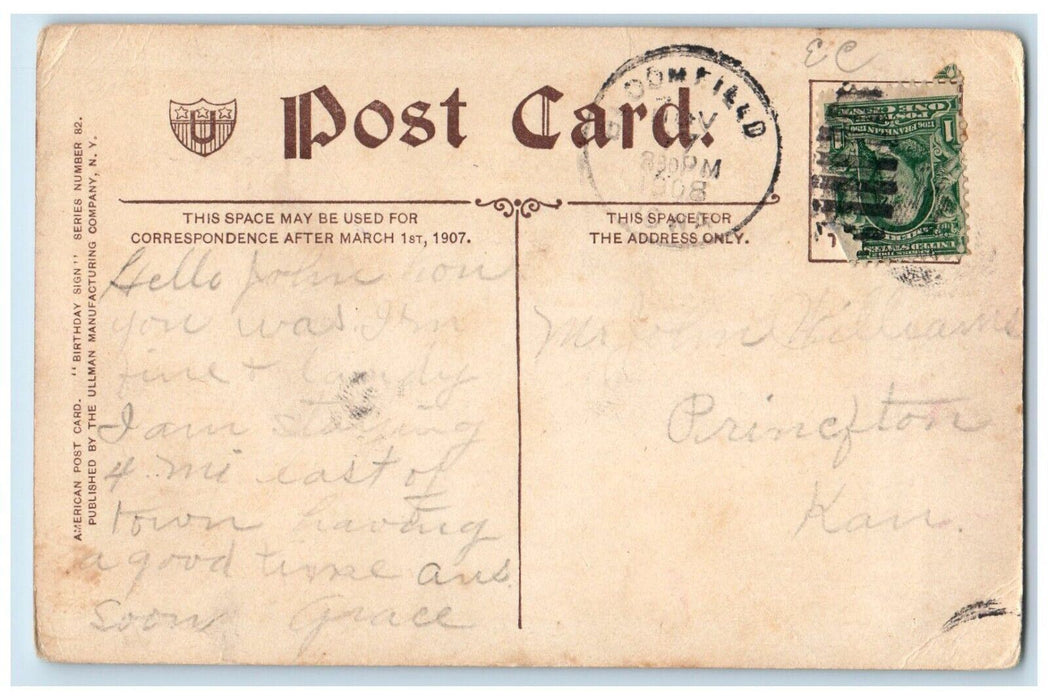 EC
Post Card.
BLOOMFIELD
NOV
830PM
1908
IOWA
ONE CENT
POSTAGE
1706 FRANKLIN 1790
1
UNITED STATES
THIS SPACE MAY BE USED FOR
CORRESPONDENCE AFTER MARCH 1ST, 1907.
THIS SPACE FOR
THE ADDRESS ONLY.
AMERICAN POST CARD. "BIRTHDAY SIGN" SERIES NUMBER 82.
PUBLISHED BY THE ULLMAN MANUFACTURING COMPANY, N. Y.
Hello John
you was. I'm
fine &
I am staying
4 mi east of
town having
a good time ans
soon Grace
Mr John Williams
Princeton
Kan.